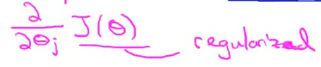 ∂/∂θⱼ J(θ) regularized